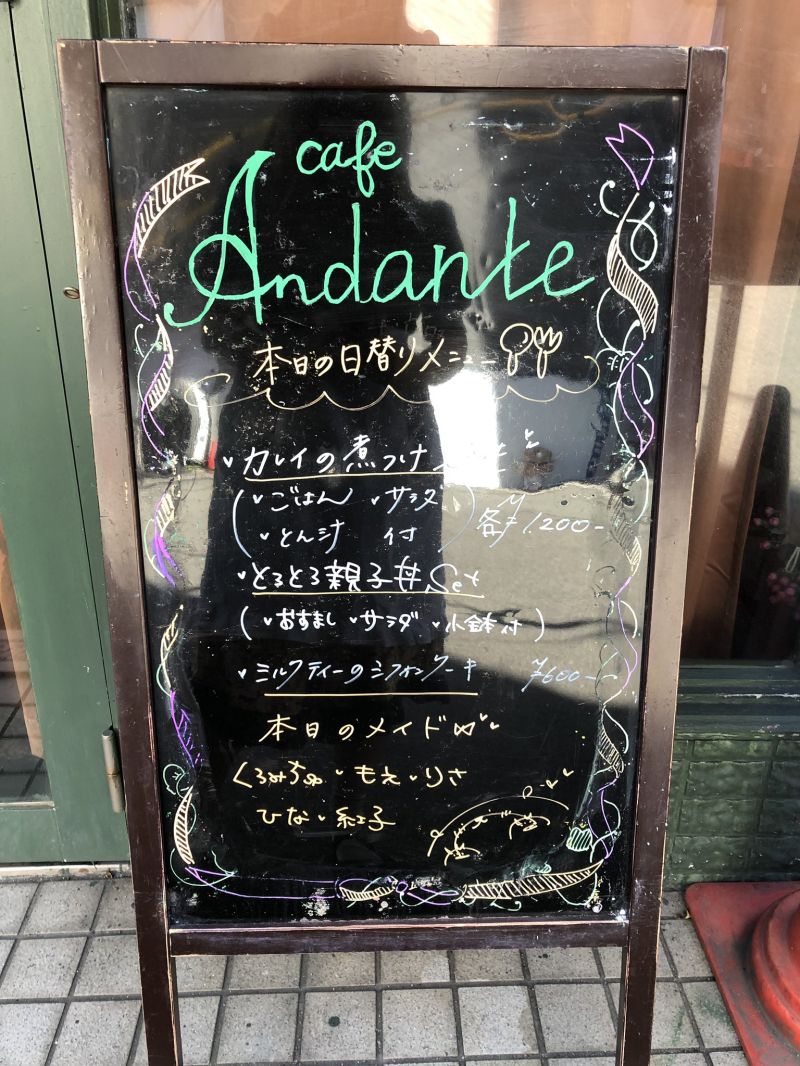 cafe
Andante
本日の日替りメニュー
カレイの煮つけ
(ごはん サラダ
とん汁 付) 各¥1.200-
とろとろ親子丼Set
(おすまし サラダ 小鉢付)
ミルクティーのシフォンケーキ ¥600-
本日のメイド
くるみちゃん もえ りさ
ひな 紅子